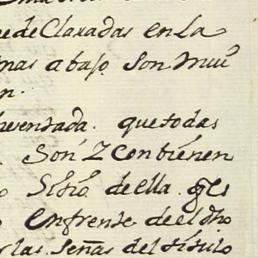 de Claradas en La
nas abajo son mui
n.
presentada. que todas
Son Z Contienen
Sitio de ella. q̃ es
enfrente de el dho
las, Señas del titulo